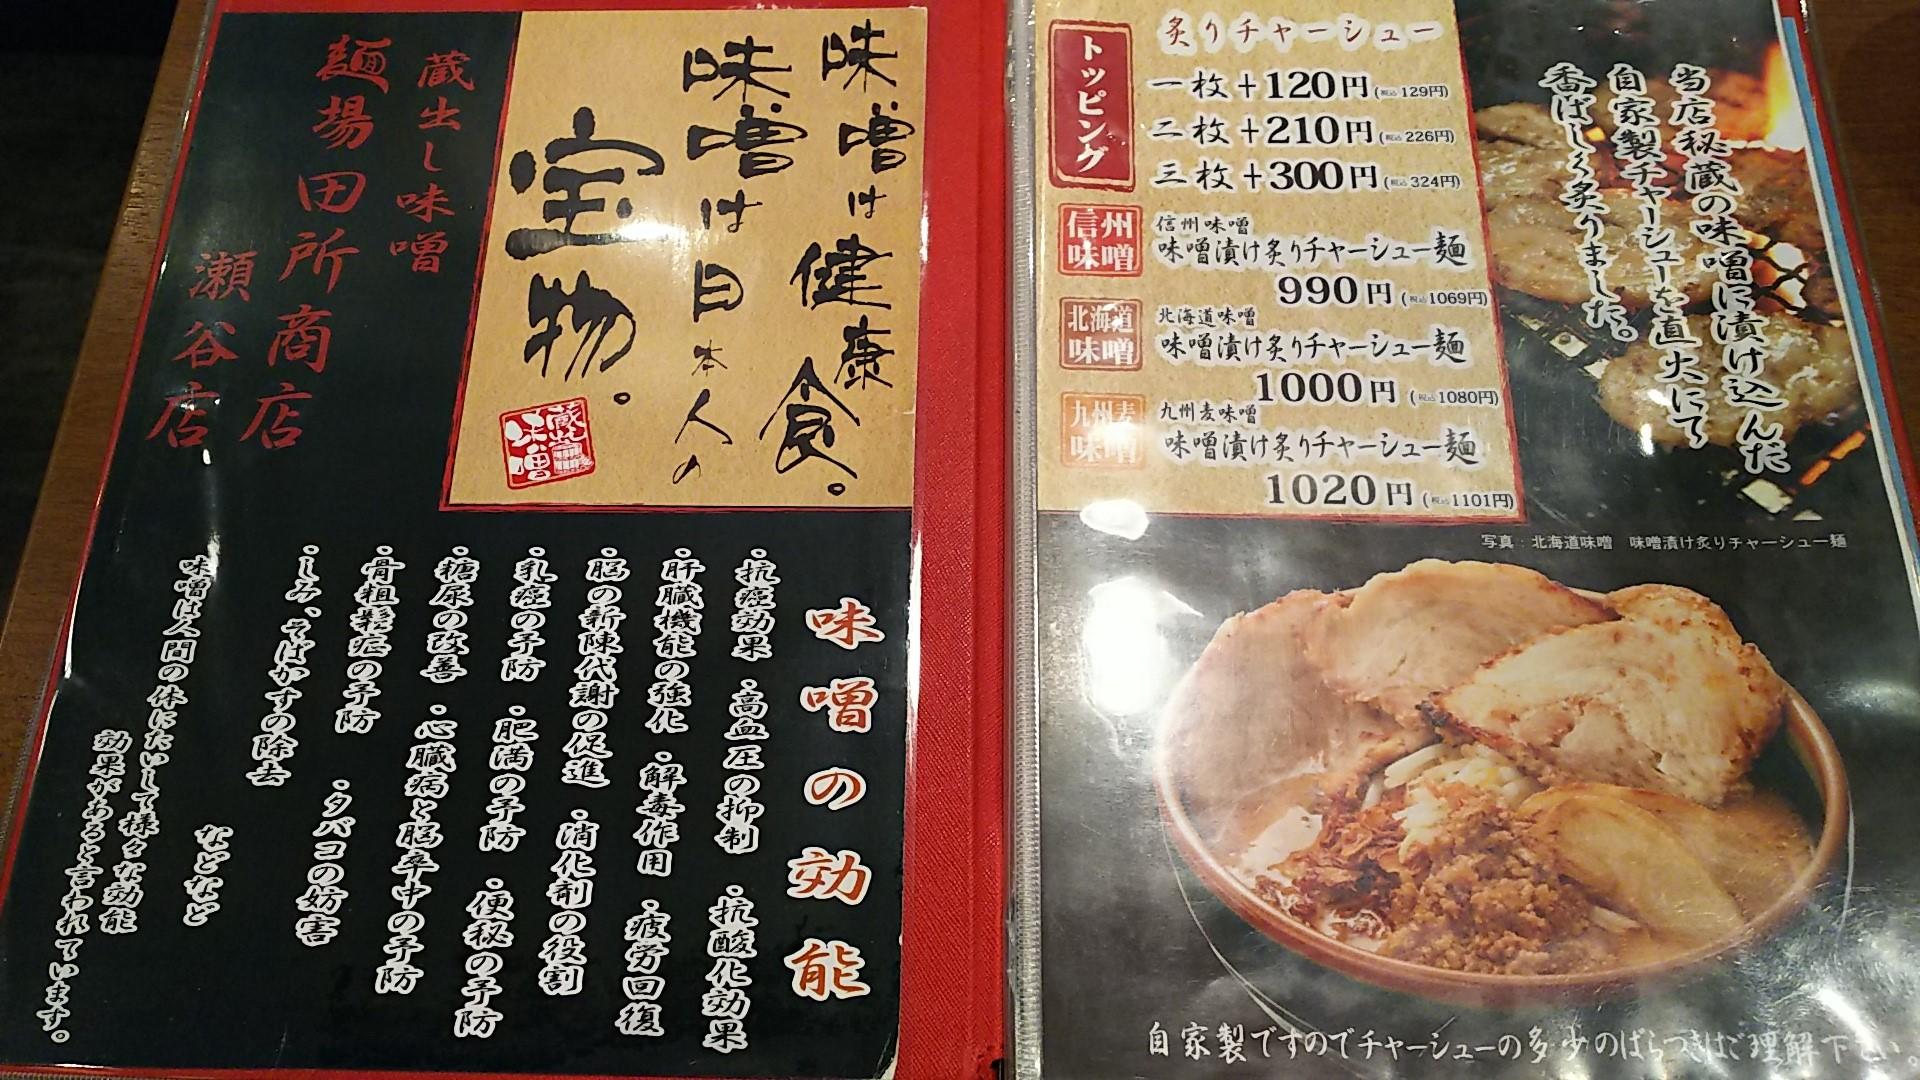 味噌は健康食。
味噌は日本人の
宝物。
蔵出し味噌
蔵出し味噌
麺場田所商店
瀬谷店
味噌の効能
・抗癌効果 ・高血圧の抑制 ・抗酸化効果
・肝臓機能の強化 ・解毒作用 ・疲労回復
・脳の新陳代謝の促進 ・消化剤の役割
・乳癌の予防 ・肥満の予防 ・便秘の予防
・糖尿の改善 ・心臓病と脳卒中の予防
・骨粗鬆症の予防 ・タバコの妨害
・しみ、そばかすの除去
などなど
味噌は人間の体にたいして様々な効能
効果があると言われています。
トッピング
炙りチャーシュー
一枚+120円(税込129円)
二枚+210円(税込226円)
三枚+300円(税込324円)
信州
味噌
信州味噌
味噌漬け炙りチャーシュー麺
990円(税込1069円)
北海道
味噌
北海道味噌
味噌漬け炙りチャーシュー麺
1000円(税込1080円)
九州麦
味噌
九州麦味噌
味噌漬け炙りチャーシュー麺
1020円(税込1101円)
当店秘蔵の味噌に漬け込んだ
自家製チャーシューを直火にて
香ばしく炙りました。
写真:北海道味噌 味噌漬け炙りチャーシュー麺
自家製ですのでチャーシューの多少のばらつきはご理解下さい。